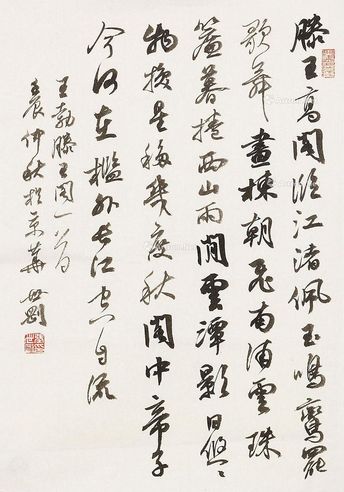 滕王高閣臨江渚佩玉鳴鸞罷
歌舞畫棟朝飛南浦雲珠
簾暮捲西山雨閒雲潭影日悠〻
物換星移幾度秋閣中帝子
今何在檻外長江空自流
王勃滕王閣一首
仲秋於京華世